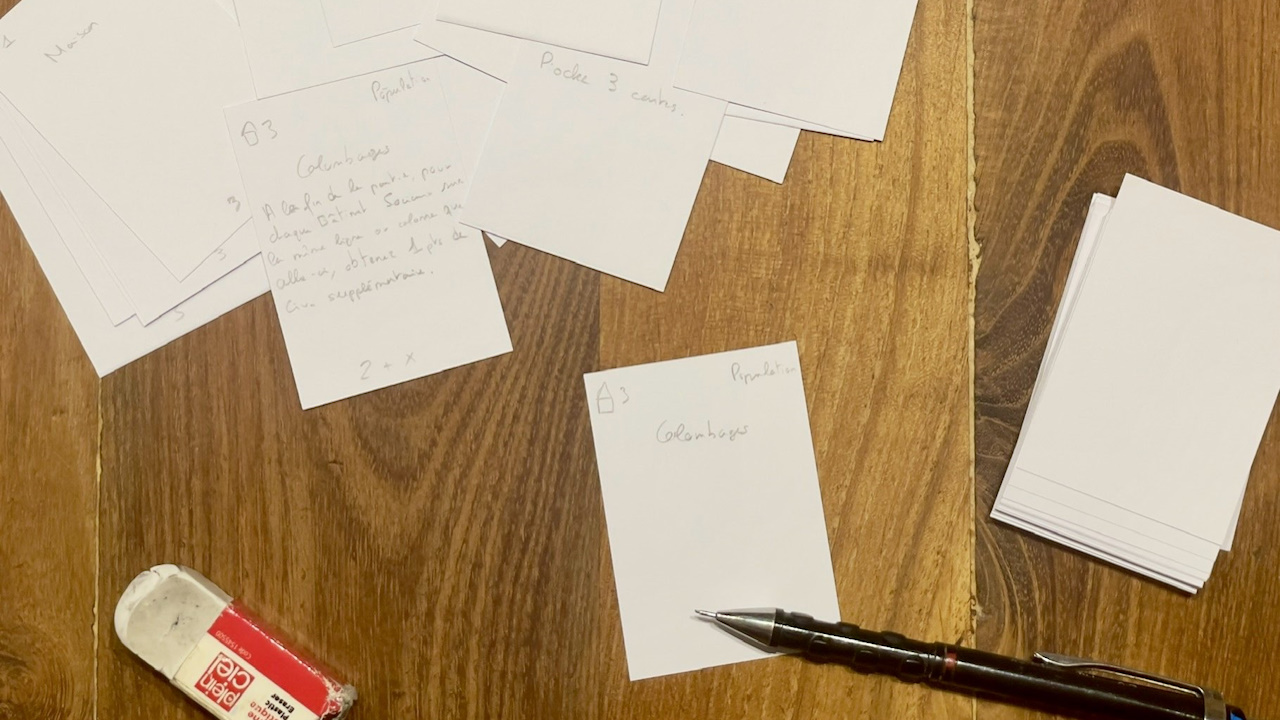 1
Maison
3
3
Population
3
Colombages
A la fin de la partie, pour
chaque bâtiment Sociums sur
la même ligne ou colonne que
celle-ci, obtenez 1 pts de
Civi supplémentaire.
2 + x
Pioche 3 cartes.
Population
3
Colombages
plein
ciel
Plastic
Eraser